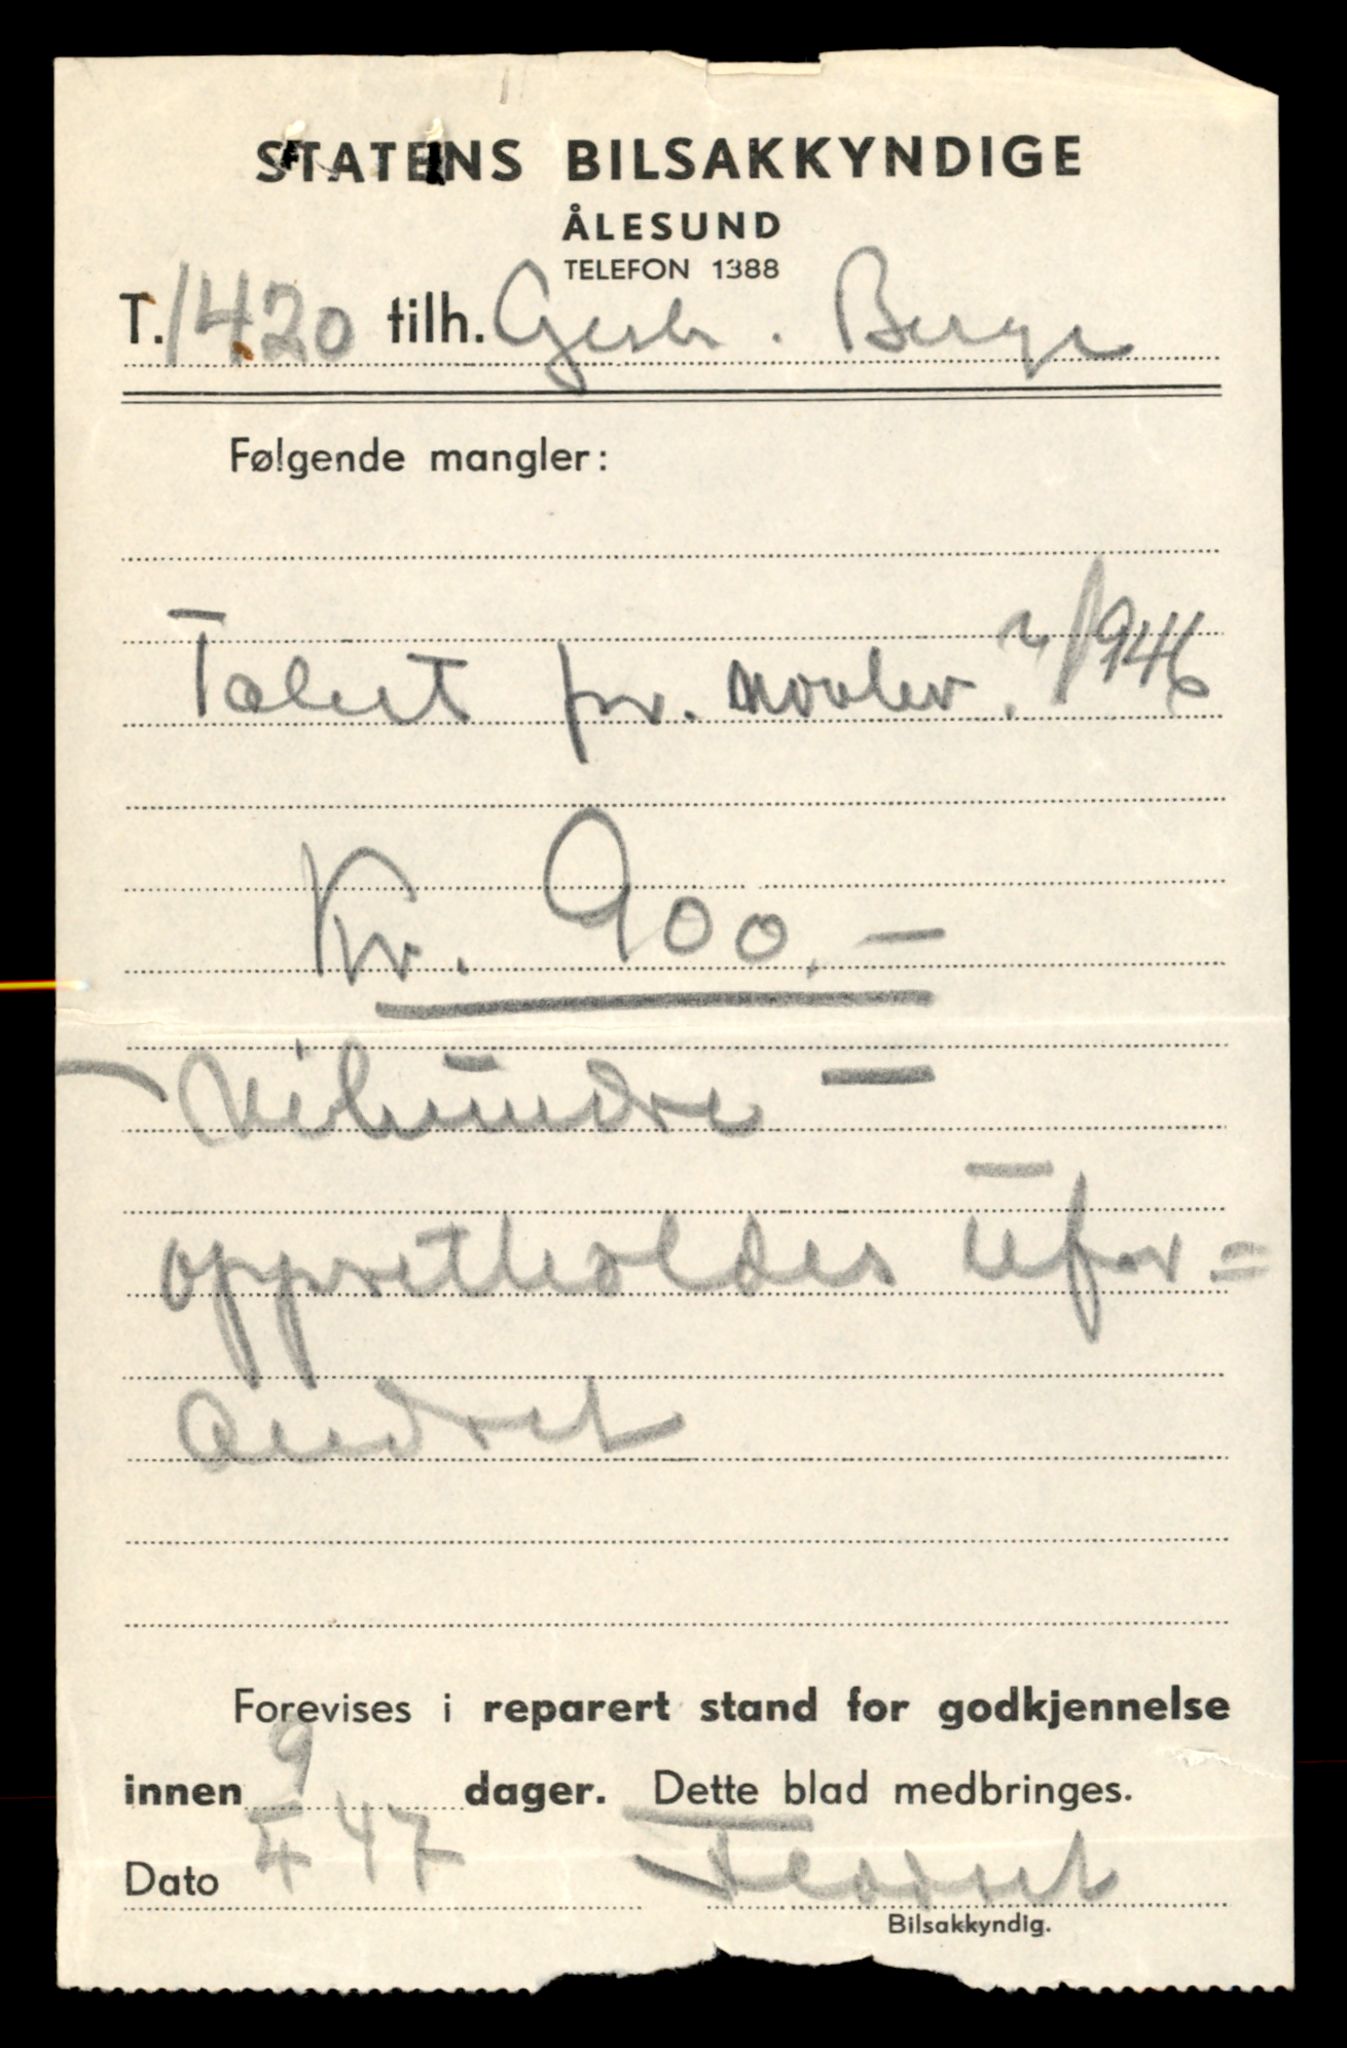 STATENS BILSAKKYNDIGE
ÅLESUND
TELEFON 1388
T. 1420 tilh. Gerh. Berge
Følgende mangler:
Takst pr. 1946
Kr. 900.-
Nihundre
opprettholdes ufor=
andret
Forevises i reparert stand for godkjennelse
innen dager. Dette blad medbringes.
Dato 9/4 47
Bilsakkyndig.